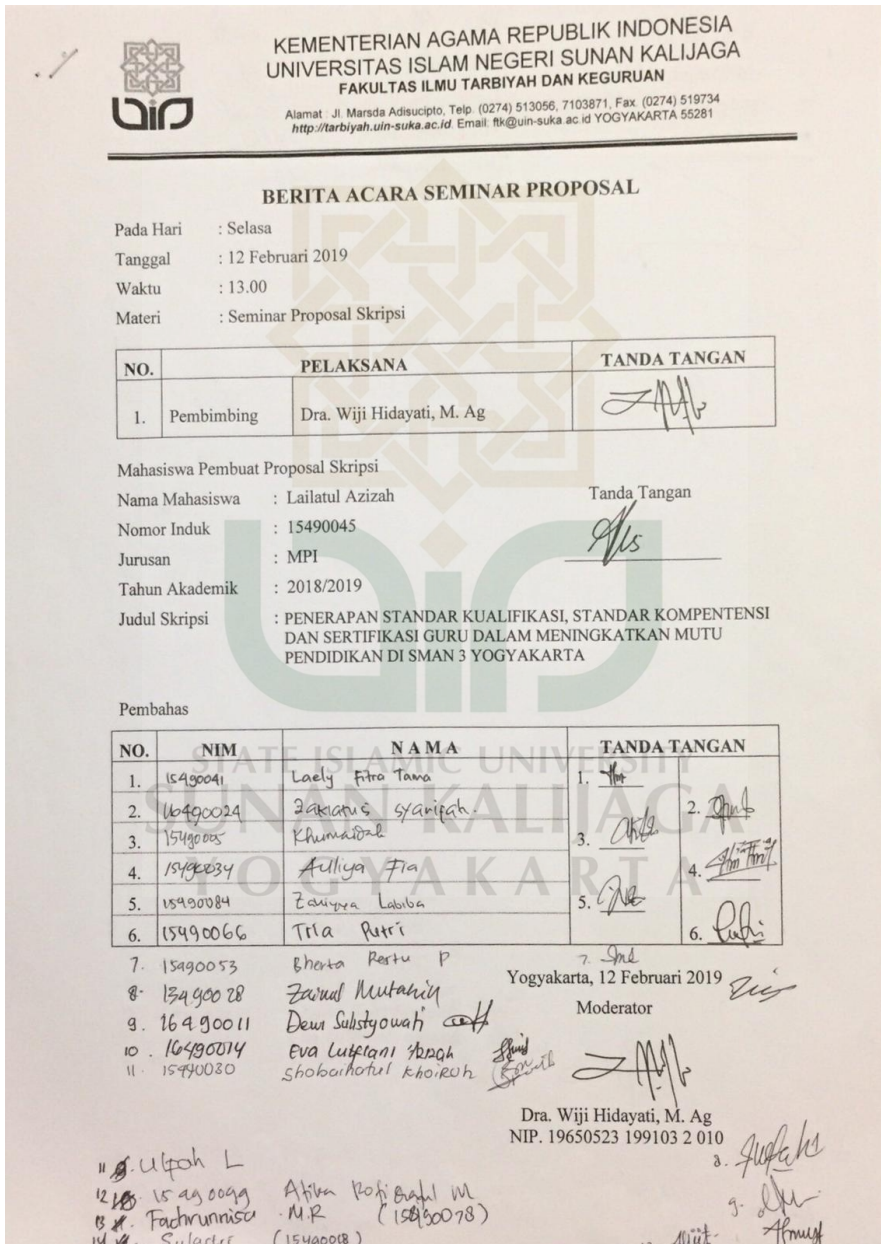 KEMENTERIAN AGAMA REPUBLIK INDONESIA
UNIVERSITAS ISLAM NEGERI SUNAN KALIJAGA
FAKULTAS ILMU TARBIYAH DAN KEGURUAN
Alamat : Jl. Marsda Adisucipto, Telp. (0274) 513056, 7103871, Fax. (0274) 519734
http://tarbiyah.uin-suka.ac.id. Email: ftk@uin-suka.ac.id YOGYAKARTA 55281
BERITA ACARA SEMINAR PROPOSAL
Pada Hari : Selasa
Tanggal : 12 Februari 2019
Waktu : 13.00
Materi : Seminar Proposal Skripsi
NO. PELAKSANA TANDA TANGAN
1. Pembimbing Dra. Wiji Hidayati, M. Ag
Mahasiswa Pembuat Proposal Skripsi
Nama Mahasiswa : Lailatul Azizah Tanda Tangan
Nomor Induk : 15490045
Jurusan : MPI
Tahun Akademik : 2018/2019
Judul Skripsi : PENERAPAN STANDAR KUALIFIKASI, STANDAR KOMPENTENSI
DAN SERTIFIKASI GURU DALAM MENINGKATKAN MUTU
PENDIDIKAN DI SMAN 3 YOGYAKARTA
Pembahas
NO. NIM N A M A TANDA TANGAN
STATE ISLAMIC UNIVERSITY
SUNAN KALIJAGA
YOGYAKARTA
1. 15490041 Laely Fitra Tama 1.
2. 16490024 Zakiatus syarifah. 2.
3. 15490005 3.
4. 15490034 Aulliya Fia 4.
5. 15490084 Labiba 5.
6. 15490066 Tria Putri 6.
7. 15490053 Bherta Restu P 7.
Yogyakarta, 12 Februari 2019
8. 13490028 Zainul
Moderator
9. 16490011 Dewi Sulistyowati
10. 16490014 Eva Lutfiani
11. 15490030 Khoiroh
Dra. Wiji Hidayati, M. Ag
NIP. 19650523 199103 2 010
11 Ulfah L 8.
12 15490099 M
13 Fachrunnisa M.R (15490078) 9.
14 (15490018)